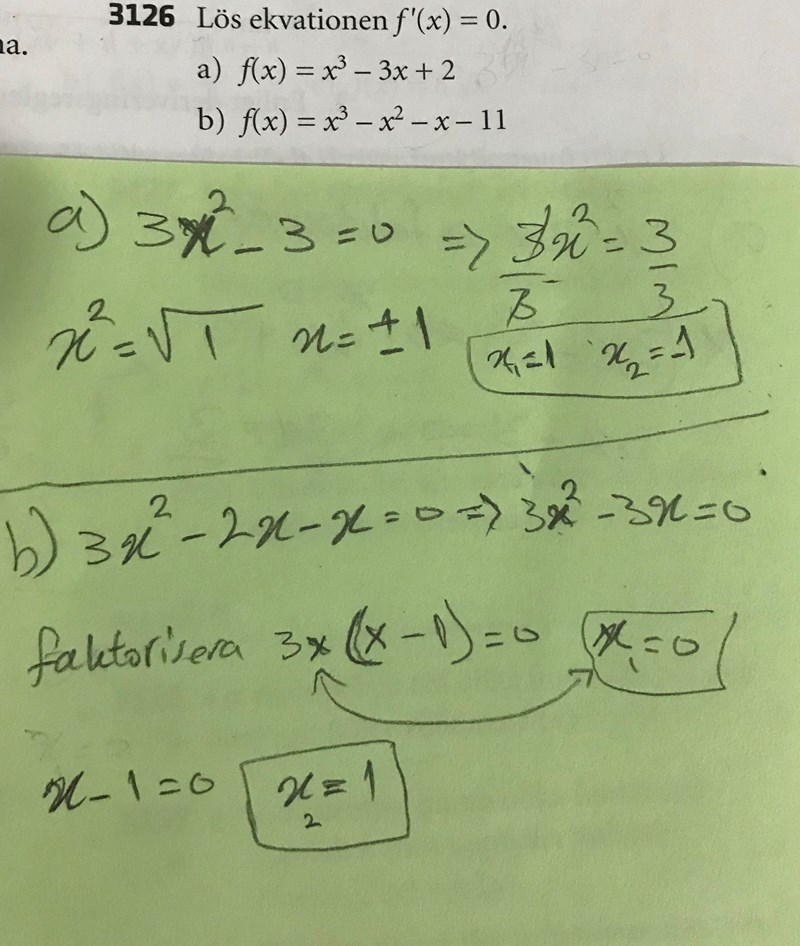 na.
3126 Lös ekvationen f'(x) = 0.
a) f(x) = x³ – 3x + 2
b) f(x) = x³ – x² – x – 11
a) 3x² - 3 = 0 => 3x²/3 = 3/3
x² = √1 x = ±1 x₁=1 x₂=-1
b) 3x² - 2x - x = 0 => 3x² - 3x = 0
faktorisera 3x (x - 1) = 0 x₁ = 0
x - 1 = 0 x₂ = 1